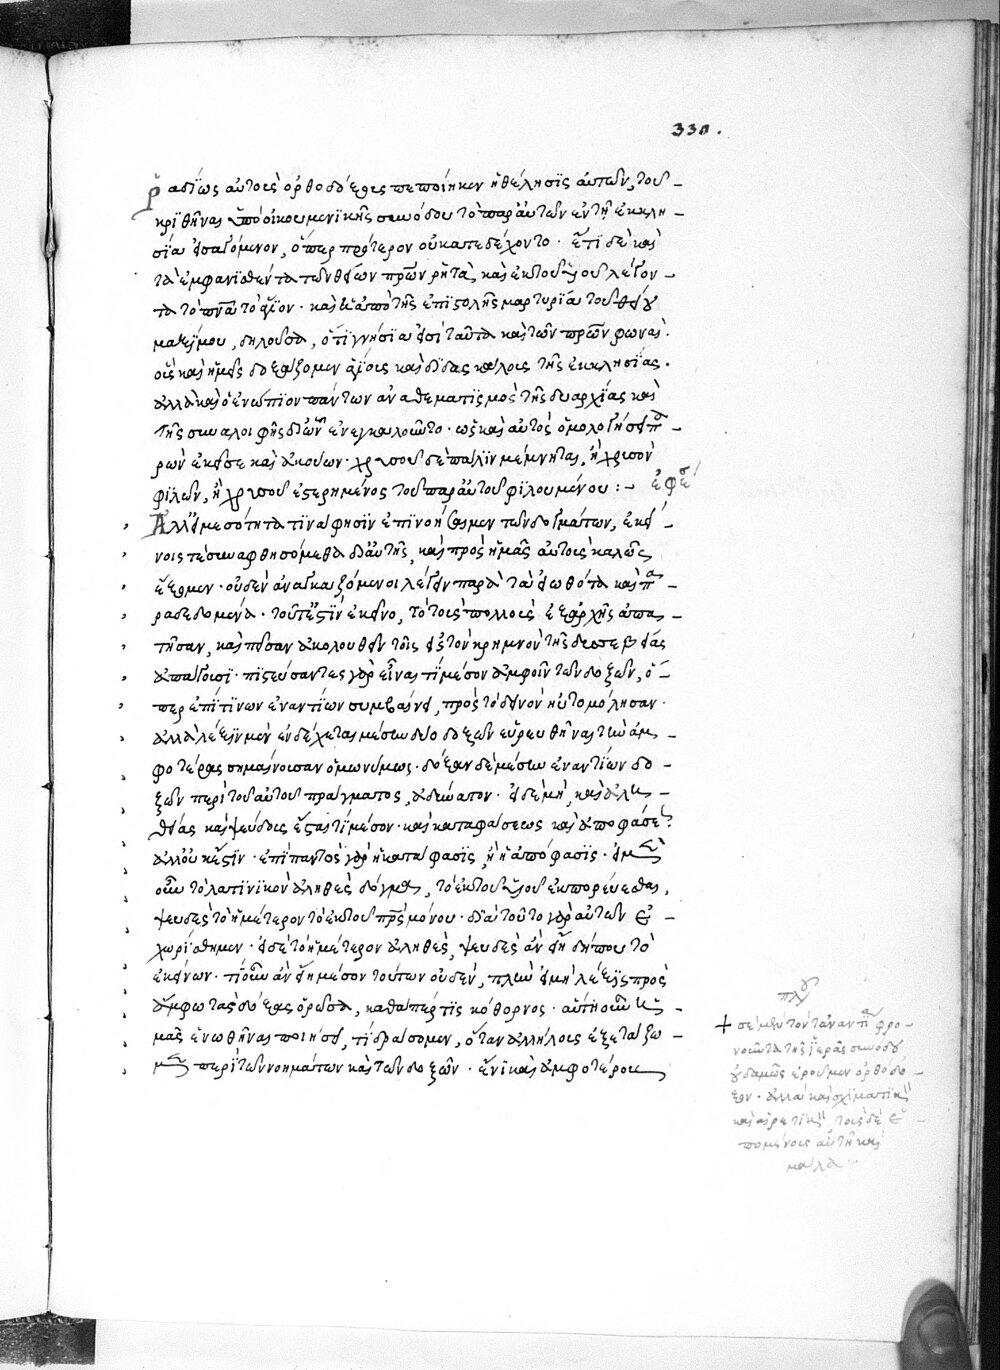 330.
ῥαδίως αὐτοὺς ὀρθοδόξους πεποίηκεν ἡ θέλησις αὐτῶν, τοῦ
κριθῆναι ὑπὸ οἰκουμενικῆς συνόδου τὸ παρ' αὐτῶν ἐν τῇ ἐκκλη
σία εἰσαγόμενον, ὅπερ πρότερον οὐ κατεδέχοντο. ἔτι δὲ καὶ
τὰ ἐμφανισθέντα τῶν θείων πρων ῥητὰ, καὶ ἐκ τοῦ υἱοῦ λέγον
τα τὸ πνα τὸ ἅγιον. καὶ ἡ ἀπὸ τῆς ἐπιστολῆς μαρτυρία τοῦ θείου
μαξίμου, δηλοῦσα, ὅτι γνήσια εἰσὶ ταῦτα καὶ τῶν πρων φωναὶ.
οἷς καὶ ἡμεῖς δοξάζομεν ἁγίοις καὶ διδασκάλοις τῆς ἐκκλησίας.
ἀλλὰ καὶ ὁ ἐνώπιον πάντων ἀναθεματισμὸς τῆς δυαρχίας καὶ
τῆς συναλοιφῆς δι' ὧν ἐνεγκαλοῦντο. ὡς καὶ αὐτὸς ὁμολογήσει πα
ρὼν ἐκεῖσε καὶ ἀκούων. χρυσοῦ δὲ πάλιν μέμνηται, ἢ χρυσὸν
φιλῶν, ἢ χρυσοῦ ἐστερημένος τοῦ παρ' αὐτοῦ φιλουμένου: ἐφεσ
Ἀλλ' εἰ μεσότητά τινα φησὶν ἐπινοήσωμεν τῶν δογμάτων, ἐκεί
νοις τε συναφθησόμεθα δι' αὐτῆς, καὶ πρὸς ἡμᾶς αὐτοὺς καλῶς
ἕξομεν. οὐδὲν ἀναγκαζόμενοι λέγειν παρὰ τὰ εἰωθότα καὶ πα
ραδεδομένα. τοῦτ' ἔστιν ἐκεῖνο, τὸ τοὺς πολλοὺς ἐξ ἀρχῆς ἀπα
τῆσαν, καὶ πεῖσαν ἀκολουθεῖν τοῖς εἰς τὸν κρημνὸν τῆς δυσσεβείας
ἀπάγουσι. πιστεύσαντες γὰρ εἶναί τι μέσον ἀμφοῖν τῶν δοξῶν, ὅ
περ ἐπί τινων ἐναντίων συμβαίνει, πρὸς τὸ δεινὸν ηὐτομόλησαν.
ἀλλὰ λέξιν μὲν ἐνδέχεται μέσην δύο δοξῶν εὑρεθῆναι τὴν ἀμ
φοτέρας σημαίνουσαν ὁμωνύμως. δόξαν δὲ μέσην ἐναντίων δο
ξῶν περὶ τοῦ αὐτοῦ πράγματος, ἀδύνατον. εἰ δὲ μὴ, καὶ ἀλη
θείας καὶ ψεύδους ἔσται τι μέσον. καὶ καταφάσεως καὶ ἀποφάσεως.
ἀλλ' οὐκ ἔστιν. ἐπὶ παντὸς γὰρ ἢ κατάφασις, ἢ ἡ ἀπόφασις. εἰ μὲν
οὖν τὸ λατινικὸν ἀληθὲς δόγμα, τὸ ἐκ τοῦ υἱοῦ ἐκπορεύεσθαι,
ψευδὲς τὸ ἡμέτερον τὸ ἐκ τοῦ πρς μόνου. διὰ τοῦτο γὰρ αὐτῶν ἐ
χωρίσθημεν. εἰ δὲ τὸ ἡμέτερον ἀληθὲς, ψευδὲς ἂν εἴη δήπου τὸ
ἐκείνων. τί οὖν ἂν εἴη μέσον τούτων οὐδὲν, πλὴν εἰ μὴ λέξις πρὸς
ἄμφω τὰς δόξας ὁρῶσα, καθάπερ τις κόθορνος. αὕτη οὖν ἡ
μᾶς ἑνωθῆναι ποιήσει, τί δράσομεν, ὅταν ἀλλήλους ἐξετάζω
μεν περὶ τῶν νοημάτων καὶ τῶν δοξῶν. ἔνι καὶ ἀμφοτέρους
σὲ μὲν τὸν τἀναντία φρο
νοῦντα τῆς ἱερᾶς συνόδου
οὐδαμῶς ἐροῦμεν ὀρθόδο
ξον. ἀλλὰ καὶ σχισματικὸν
καὶ αἱρετικόν, τοὺς δὲ ἑ
πομένους αὐτῇ καὶ
μάλα